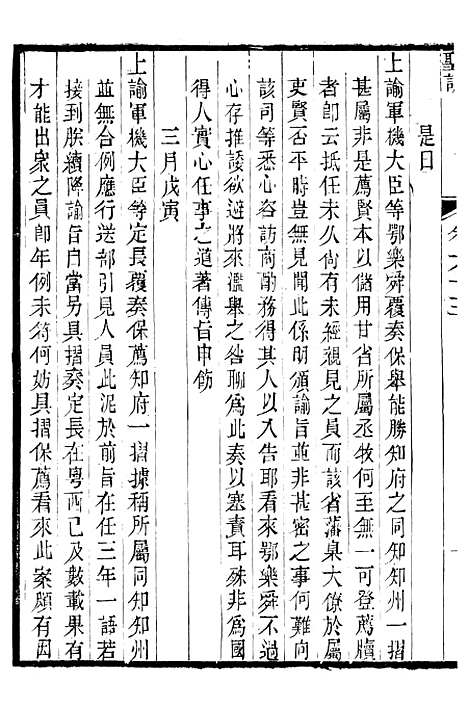 聖訓
是日
上諭軍機大臣等鄂樂舜覆奏保舉能勝知府之同知知州一摺
甚屬非是薦賢本以儲用甘省所屬丞牧何至無一可登薦牘
者即云抵任未久尚有未經親見之員而該省藩臬大僚於屬
吏賢否平時豈無見聞此係明頒諭旨並非甚密之事何難向
該司等悉心咨訪商酌豈竟無其人以入告耶看來鄂樂舜不過
心存推諉欲避將來濫舉之咎聊為此奏以塞責耳殊非為國
得人實心任事之道著傳旨申飭
三月戊寅
上諭軍機大臣等定長覆奏保薦知府一摺據稱所屬同知知州
並無合例應行送部引見人員此泥於前旨在任三年一語若
接到朕續降諭旨自當另具摺奏定長在粵西已及數載果有
才能出衆之員即年例未符何妨具摺保薦看來此案頗有因